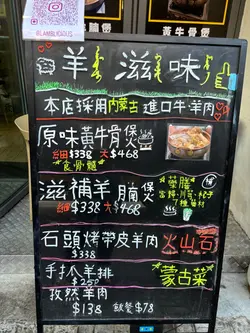 @LAMBLICIOUS
黃牛骨煲
羊滋味
本店採用內蒙古進口牛.羊肉
原味黃牛骨煲
細$338 大$468
滋補羊腩煲
細$338 大$468
7種藥材
石頭烤帶皮羊肉 火山石
$338
手扒羊排
蒙古菜
孜然羊肉
$138 飲餐$78